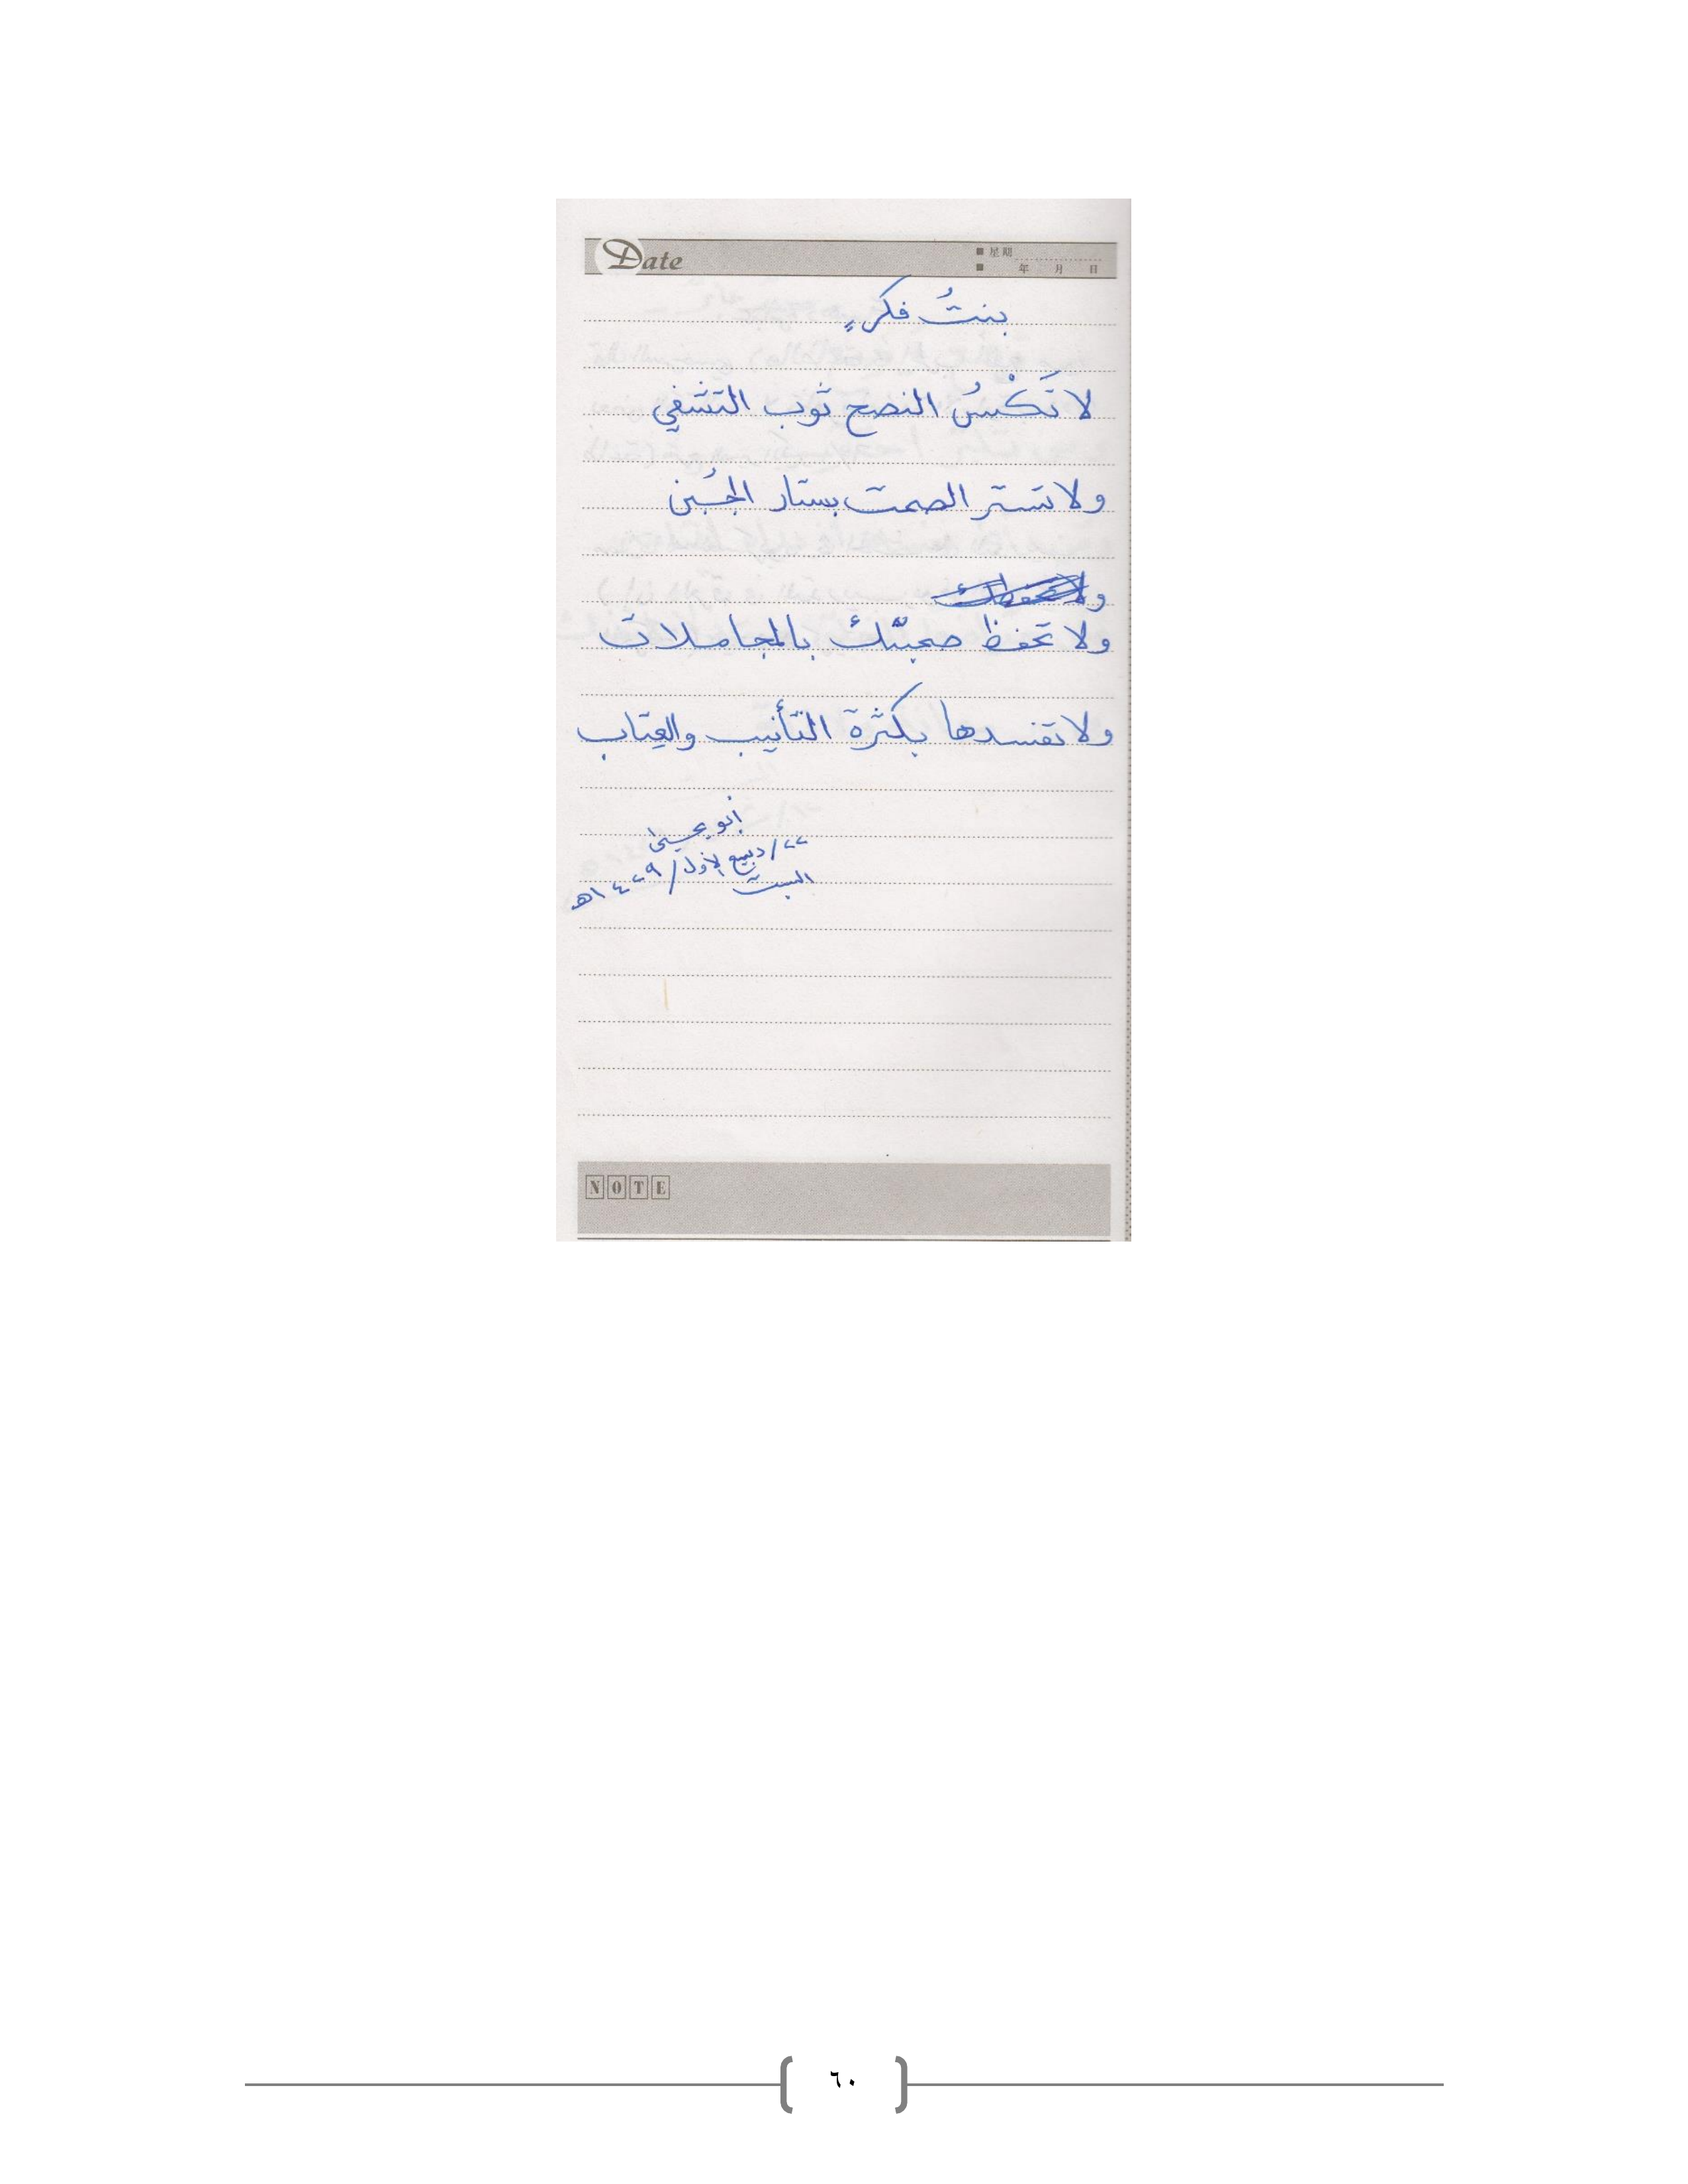 Date
■ 星期
■ 年 月 日
بنتُ فكرٍ
لا تَكْسُ النصح ثوب التشفي
ولا تستر الصمت بستار الجُبن
ولا
ولا تحفظ صحبتك بالمجاملات
ولا تفسدها بكثرة التأنيب والعتاب
أبو يحيى
٢٢/ربيع الأول/١٤٢٩هـ
السبت
NOTE
٦٠